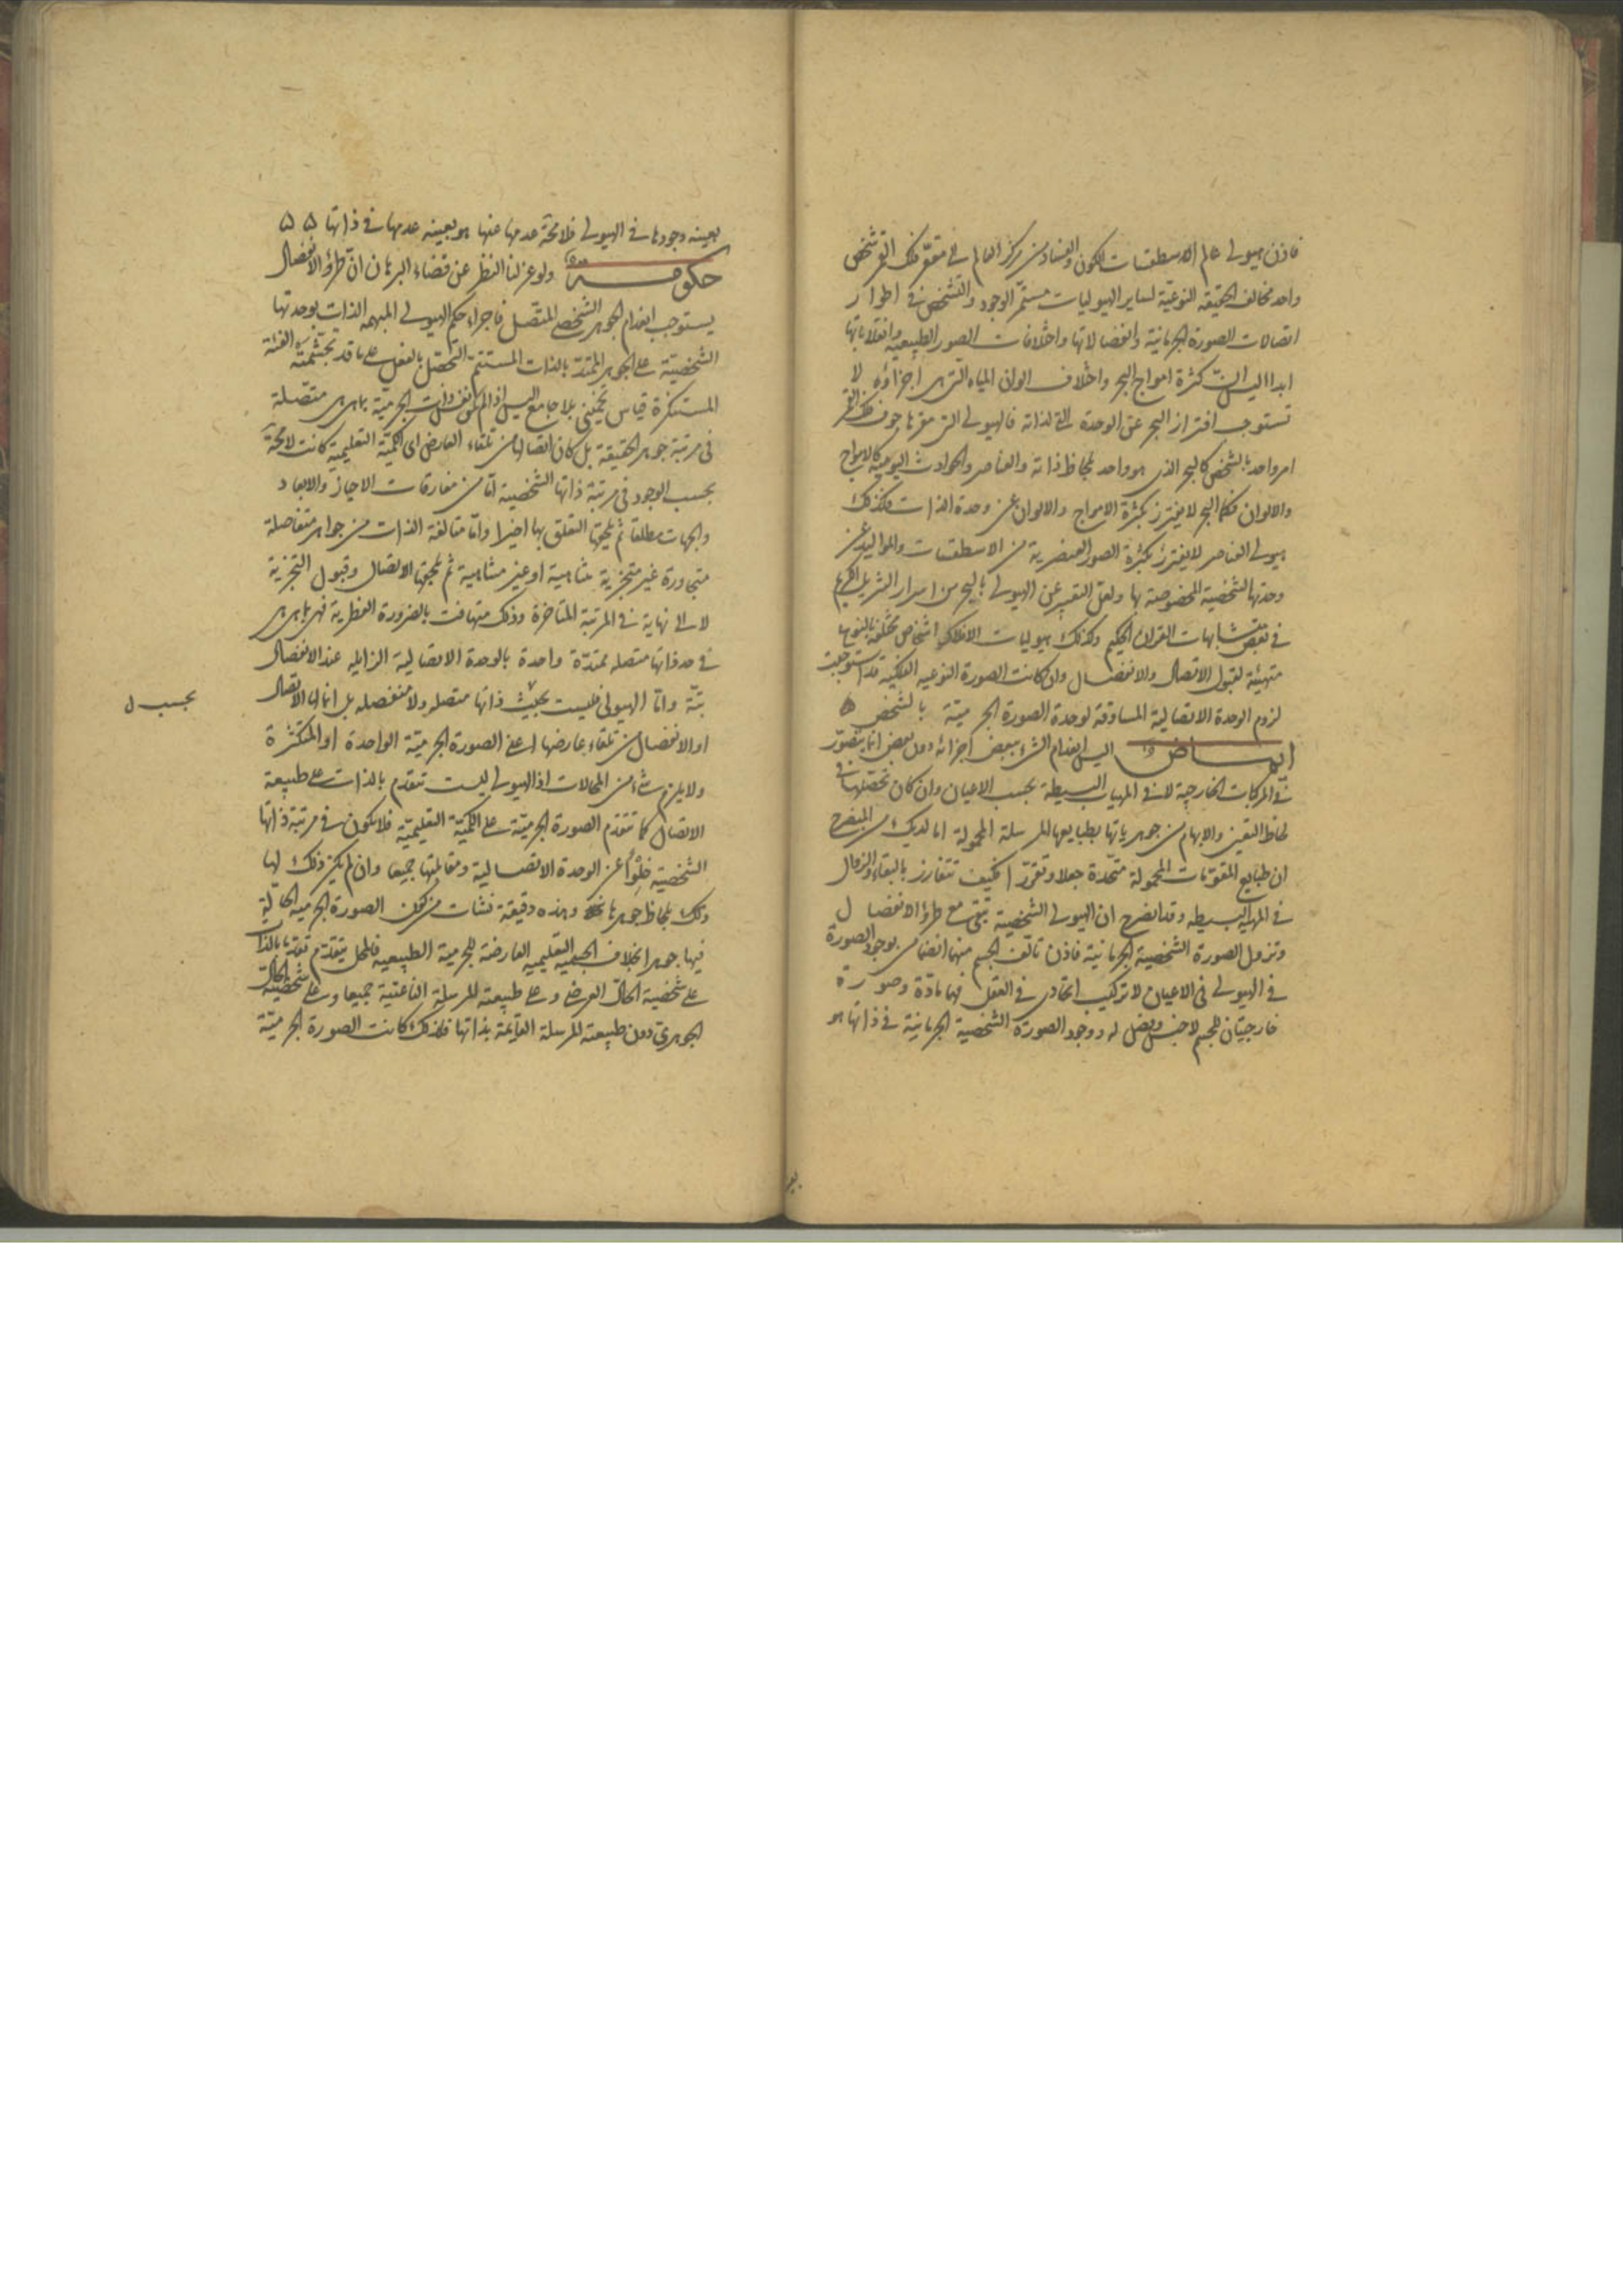 فاذن هيولى عالم الاسطقسات الكون والفساد من مركز العالم الى مقعر فلك القمر شخص
واحد مخالف الحقيقة النوعية لساير الهيوليات مستمر الوجود والتشخص في اطوار
اتصالات الصورة الجرمانية وانفصالاتها واختلافات الصور الطبيعية وانقلاباتها
ابدا اليس ان كثرة امواج البحر واختلاف الوان المياه التي هى اجزاؤه لا
تستوجب افتراز البحر عن الوحدة التي لذاته فالهيولى التي مقرها جوف فلك القمر
امر واحد بالشخص كالبحر الذى هو واحد بلحاظ ذاته والعناصر والحوادث اليومية كالامواج
والالوان فكما البحر لا يفترز بكثرة الامواج والالوان عن وحدة الذات فكذلك
هيولى العناصر لا يفترز بكثرة الصور العنصرية من الاسطقسات والمواليد عن
وحدتها الشخصية المخصوصة بها ولعل التعبير عن الهيولى بالبحر من اسرار التنزيل الكريم
في بعض متشابهات القرآن الحكيم وكذلك هيوليات الافلاك اشخاص مختلفة بالنوع
متهيئة لقبول الاتصال والانفصال وان كانت الصورة النوعيه الفلكية قد استوجبت
لزوم الوحدة الاتصالية المساوقة لوحدة الصورة الجرمية بالشخص ه
ايماض اليس انعدام الشئ ببعض اجزائه دون بعض انما يتصور
في المركبات الخارجية لا في المهيات البسيطة بحسب الاعيان وان كان تحصلها في
لحاظ التعين والابهام من جوهرياتها بطبايعها المرسلة المحمولة اما لديك من المنصرح
ان طبايع المقومات المحمولة متحدة جعلا وتقررا فكيف تتفارز بالبقاء والزوال
في المهية البسيطه وقد انصرح ان الهيولى الشخصية تبقى مع طرؤ الانفصال
وتزول الصورة الشخصية الجرمانية فاذن تالف الجسم منهما انضمامى بوجود الصورة
في الهيولى في الاعيان لا تركيب اتحادى في العقل فهما مادة وصورة
خارجيتان للجسم لا جنس وفصل له ووجود الصورة الشخصية الجرمانية في ذاتها هو
بعينه وجودها في الهيولى فلا محة عدمها عنها هو بعينه عدمها في ذاتها ه ه
حكومة ولو عزلنا النظر عن قضاء البرهان ان طرؤ الانفصال
يستوجب انعدام الجوهر الشخصى المتصل فاجراء حكم الهيولى المبهمه الذات بوحدتها
الشخصية على الجوهر الممتد بالذات المستتم التحصل بالفعل على ما قد تجشمته الفئة
المستنكرة قياس تخمينى بلا جامع اليس اذا لم تكن ذات الجرمية بما هى هى متصلة
في مرتبة جوهر الحقيقة بل كان اتصالها من تلقاء العارض اى الكمية التعليمية كانت لا محة
بحسب الوجود في مرتبة ذاتها الشخصية اما من مفارقات الاحياز والابعاد
والجهات مطلقا ثم يلحقها التعلق بها اخيرا واما متالفة الذات من جواهر متفاصلة
متجاورة غير متجزية متناهية او غير متناهية ثم يلحقها الاتصال وقبول التجزية
لا الى نهاية في المرتبة المتاخرة وذلك متهافت بالضرورة الفطرية فهى بما هى هى
في حد ذاتها متصله ممتدة واحدة بالوحدة الاتصالية الزايله عند الانفصال
بتة واما الهيولى فليست بحيث ذاتها متصله ولا منفصله بل انما لها الاتصال
بحسب ل
او الانفصال من تلقاء عارضها اعنى الصورة الجرمية الواحدة او المتكثرة
ولا يلزم شئ من المحالات اذ الهيولى ليست تتقدم بالذات على طبيعة
الاتصال كما تتقدم الصورة الجرمية على الكمية التعليمية فلا تكون في مرتبة ذاتها
الشخصيه خلوا عن الوحدة الاتصالية ومقابلتها جميعا وان لم يكن ذلك لها
بلحاظ جوهرها وهذه دقيقة نشات من كون الصورة الجرميه الحالة
فيها جوهرا بخلاف الجسمية التعليميه العارضة للجرمية الطبيعيه فالمحل يتقدم تقدما بالذات
على شخصية الحال العرضى وعلى طبيعته المرسلة الناعتية جميعا وعلى شخصية الحال
الجوهرى دون طبيعته المرسلة القايمة بذاتها فلذلك كانت الصورة الجرمية